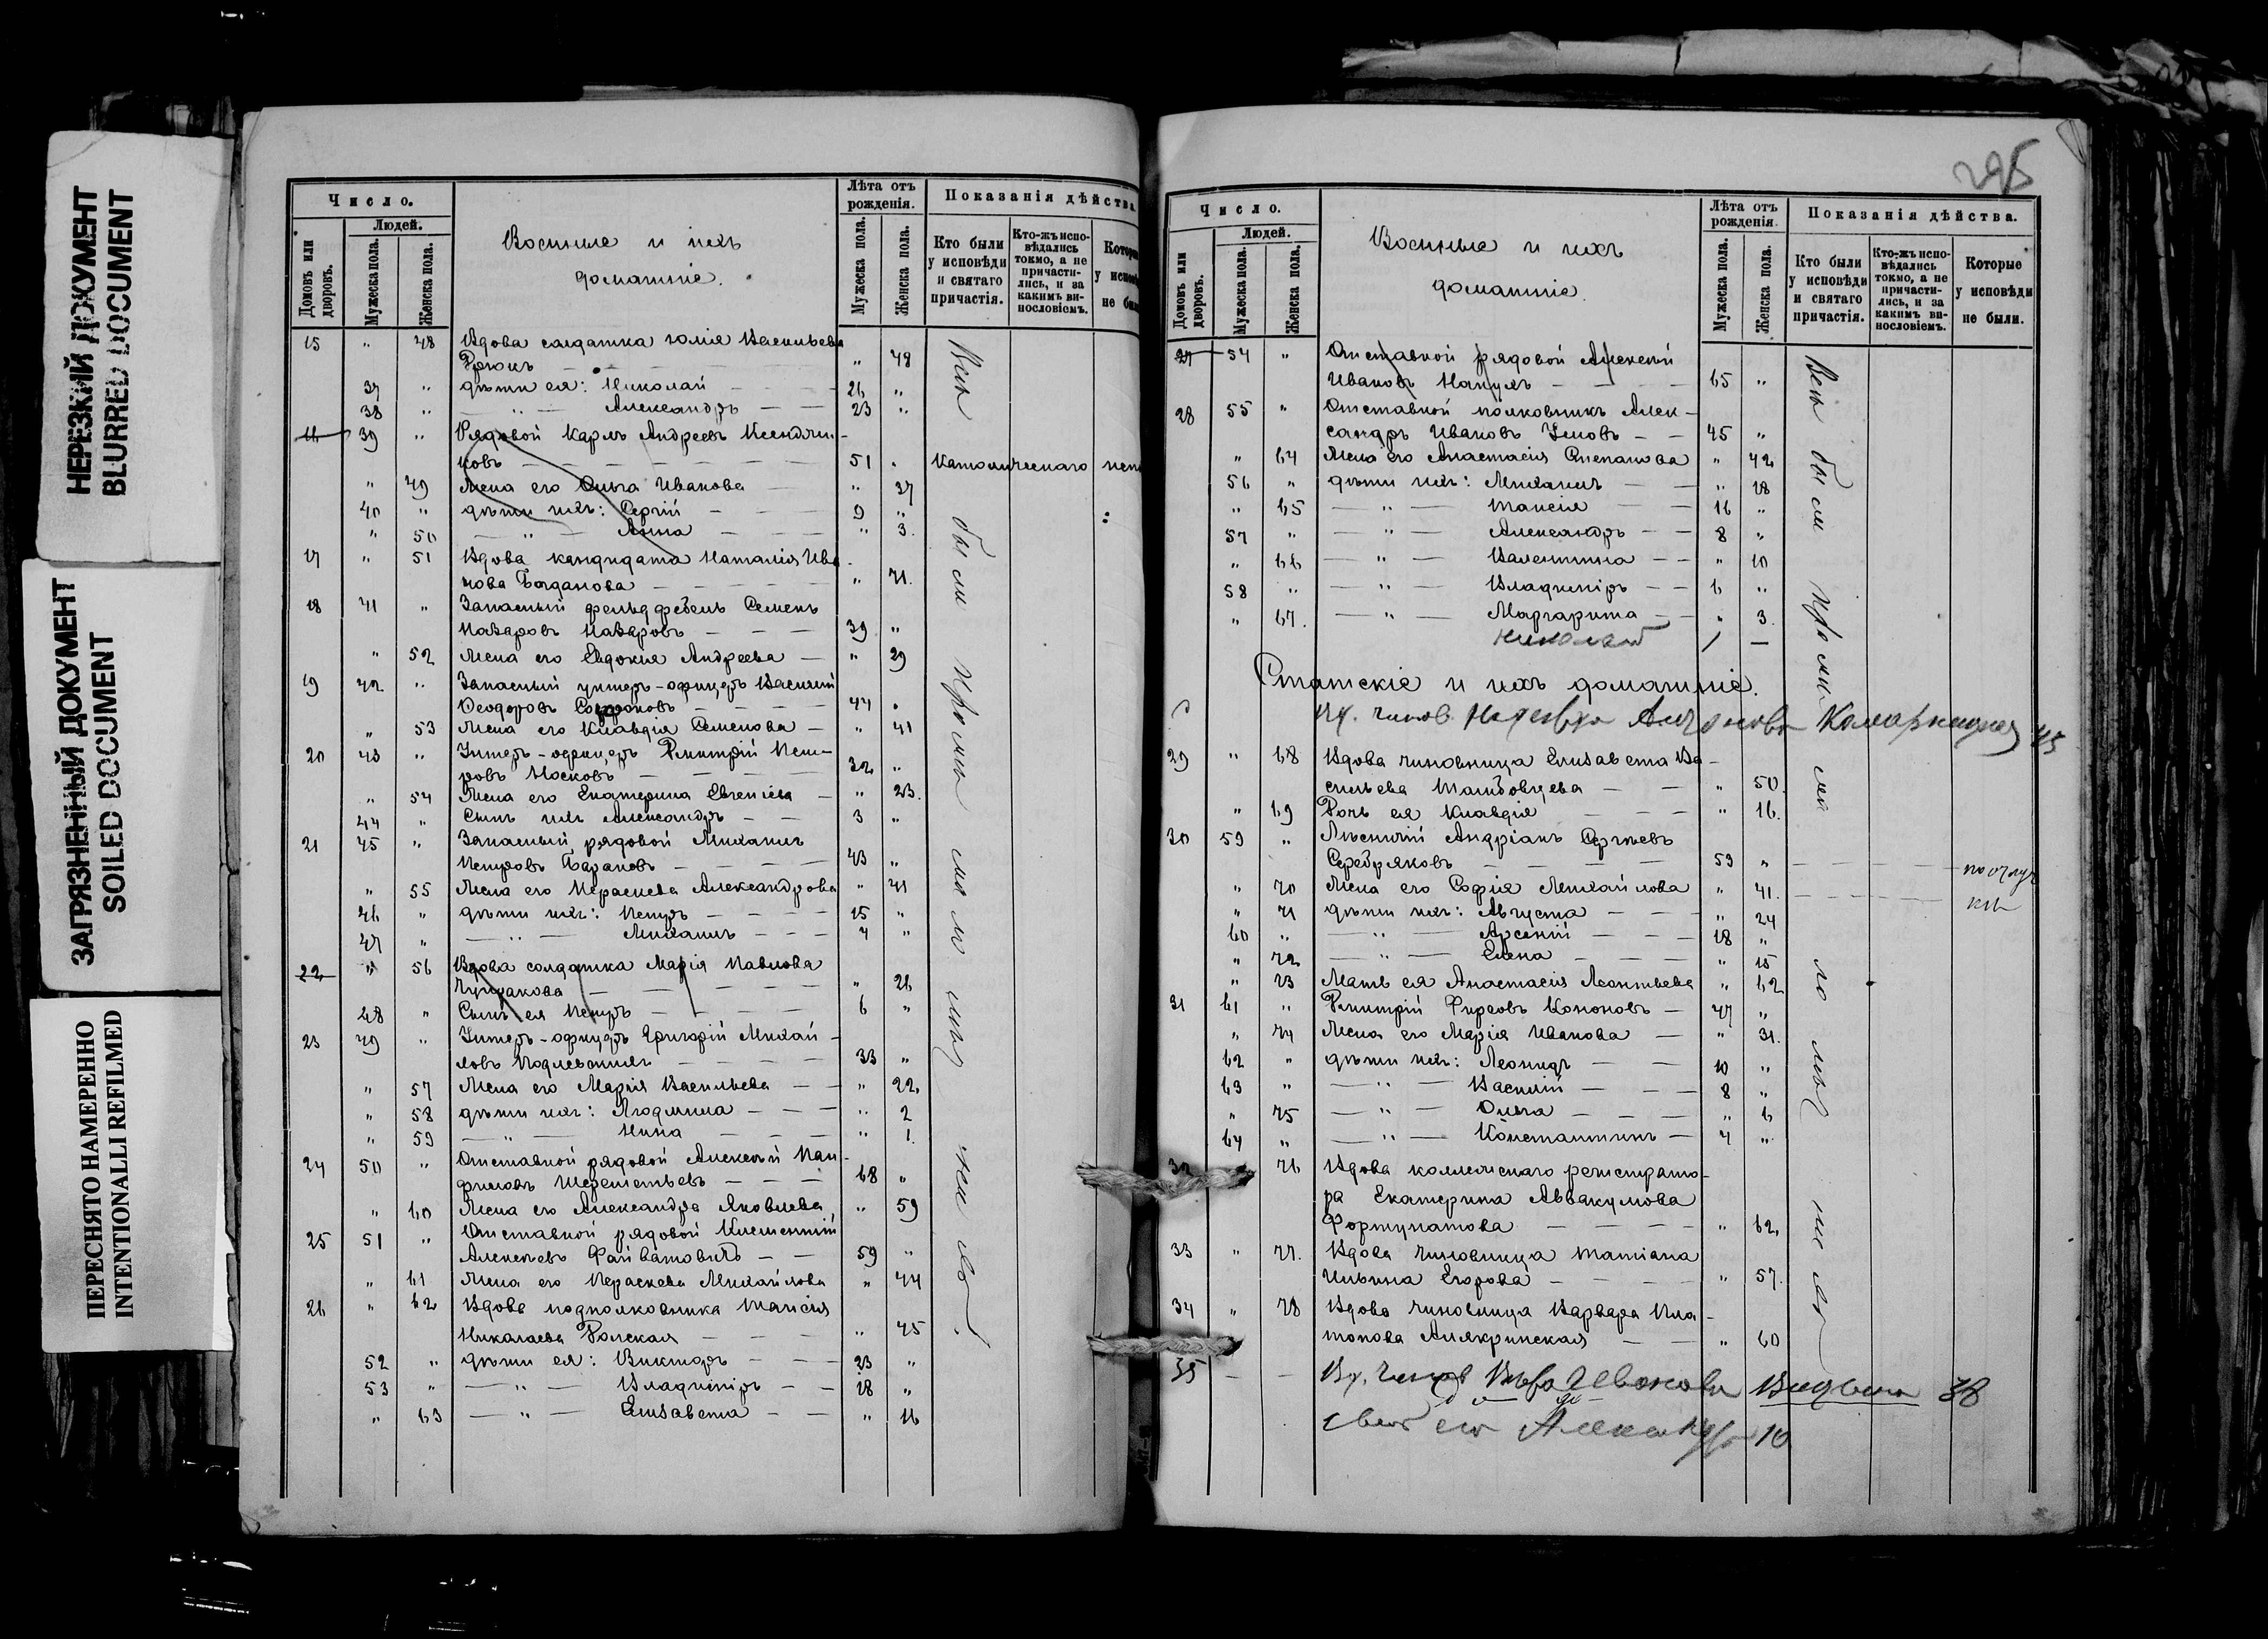 НЕРЕЗКИЙ ДОКУМЕНТ
BLURRED DOCUMENT
ЗАГРЯЗНЕННЫЙ ДОКУМЕНТ
SOILED DOCUMENT
ПЕРЕСНЯТО НАМЕРЕННО
INTENTIONALLI REFILMED
Число.
Людей.
Домовъ или дворовъ.
Мужеска пола.
Женска пола.
Военные и ихъ
домашніе.
Лѣта отъ рожденія.
Мужеска пола.
Женска пола.
Показанія дѣйства
Кто были у исповѣди и святаго причастія.
Кто-жъ исповѣдались токмо, а не причастились, и за какимъ винословіемъ.
15 " 48 Вдова солдатка Юлія Васильева
" 48
37 " дѣти ея: Николай 26 "
38 " — " — Александръ 23 "
16 39 " Рядовой Карлъ Андреевъ
ковъ 51 " Католическаго
" 49 Жена его Ольга Иванова " 37
40 " дѣти ихъ: Сергій 9 "
" 50 — " — Анна " 3.
17 " 51 Вдова кандидата Наталія Ива-
нова Богданова " 71.
18 41 " Запасный фельдфебель Семенъ
Назаровъ Назаровъ 39 "
" 52 Жена его Евдокія Андреева " 29
19 42 " Запасный унтеръ-офицеръ Василій
Ѳеодоровъ 44 "
" 53 Жена его Клавдія Семенова " 41
20 43 " Унтеръ-офицеръ Димитрій Пет-
ровъ Носковъ 32 "
" 54 Жена его Екатерина Евгеніева " 23.
44 " Сынъ ихъ Александръ 3 "
21 45 " Запасный рядовой Михаилъ
Петровъ Барановъ 43 "
" 55 Жена его Параскева Александрова " 41
46 " дѣти ихъ: Петръ 15 "
47 " — " — Михаилъ 7 "
22 " 56 Вдова солдатка Марія Павлова
" 26
48 " Сынъ ея Петръ 6 "
23 49 " Унтеръ-офицеръ Григорій Михай-
ловъ 33 "
" 57 Жена его Марія Васильева " 22,
" 58 дѣти ихъ: Людмила " 2
" 59 — " — Нина " 1.
24 50 " Отставной рядовой Алексѣй Пан-
филовъ Шереметьевъ 68 "
" 60 Жена его Александра Яковлева " 59
25 51 " Отставной рядовой Климентій
Алексѣевъ 59 "
" 61 Жена его Параскева Михайлова " 44
26 " 62 Вдова подполковника Таисія
Николаева " 45
52 " дѣти ея: Викторъ 23 "
53 " — " — Владиміръ 18 "
" 63 — " — Елизавета " 16
Всѣ были
295
Число.
Людей.
Домовъ или дворовъ.
Мужеска пола.
Женска пола.
Военные и ихъ
домашніе.
Лѣта отъ рожденія.
Мужеска пола.
Женска пола.
Показанія дѣйства.
Кто были у исповѣди и святаго причастія.
Кто-жъ исповѣдались токмо, а не причастились, и за какимъ винословіемъ.
Которые у исповѣди не были.
27 54 " Отставной рядовой Алексѣй
Ивановъ 65 "
28 55 " Отставной полковникъ Алек-
сандръ Ивановъ 45 "
" 64 Жена его Анастасія Степанова " 42
56 " дѣти ихъ: Михаилъ " 18
" 65 — " — Таисія 16 "
57 " — " — Александръ 8 "
" 66 — " — Валентина " 10
58 " — " — Владиміръ 6 "
" 67. — " — Маргарита " 3.
Николай 1 —
Статскіе и ихъ домашніе.
45
29 " 68 Вдова чиновница Елизавета Ва-
сильева " 50.
" 69 Дочь ея Клавдія " 16.
30 59 " Лѣсничій Андріанъ Сергѣевъ
Серебряковъ 59 "
" 70 Жена его Софія Михайлова " 41.
" 71 дѣти ихъ: Августа " 24
60 " — " — Арсеній 18 "
" 72 — " — Елена " 15
" 73 Мать ея Анастасія Леонтьева " 62
31 61 " Димитрій Фирсовъ Кононовъ 47 "
" 74 Жена его Марія Иванова " 31.
62 " дѣти ихъ: Леонидъ 10 "
63 " — " — Василій 8 "
" 75 — " — Ольга " 6
64 " — " — Константинъ 4 "
32 76 Вдова коллежскаго регистрато-
ра Екатерина Аввакумова
Фортунатова " 62,
33 " 77. Вдова чиновница Татіана
Ильина Егорова " 57.
34 " 78 Вдова чиновница Варвара Пла-
тонова Алякринская " 60
35 — — Вд. Чинов. Вѣра Иванова 38
10
Всѣ были